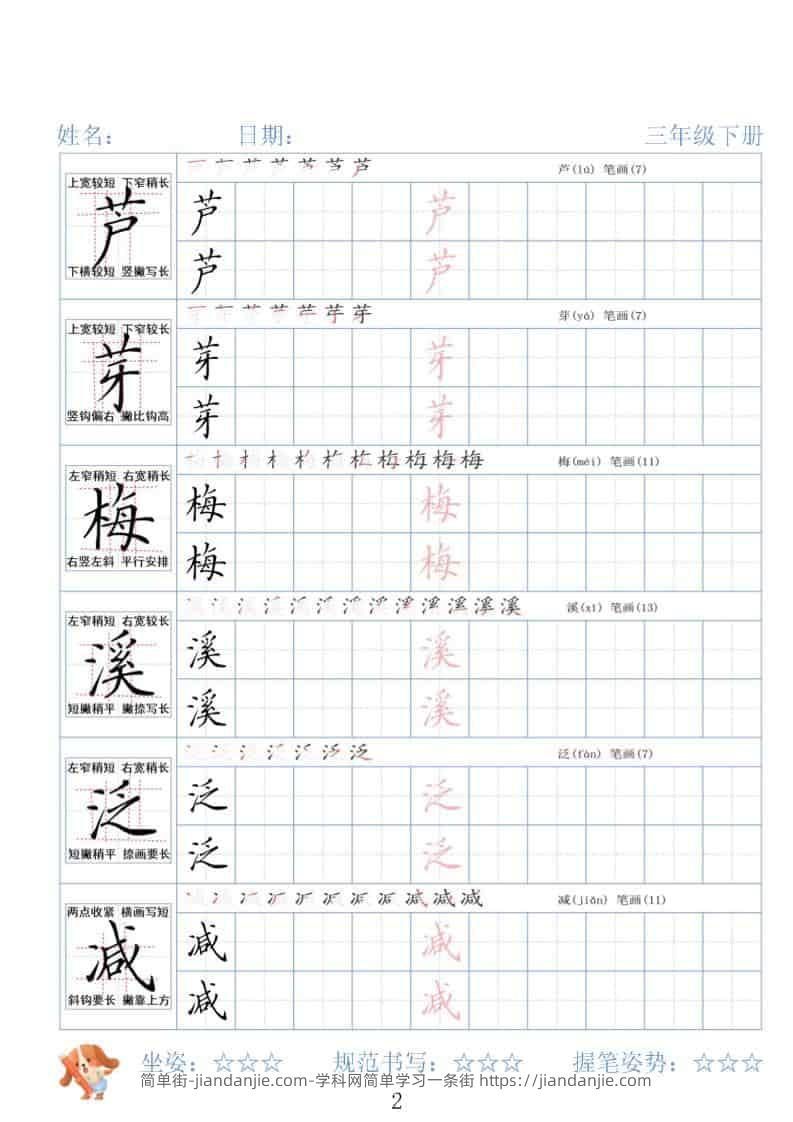 姓名： 日期： 三年级下册
上宽较短 下窄稍长
芦
下横较短 竖撇写长
芦(lú) 笔画(7)
芦 芦
芦 芦
上宽较短 下窄较长
芽
竖钩偏右 撇比钩高
芽(yá) 笔画(7)
芽 芽
芽 芽
左窄稍短 右宽稍长
梅
右竖左斜 平行安排
梅(méi) 笔画(11)
梅 梅
梅 梅
左窄稍短 右宽较长
溪
短撇稍平 撇捺写长
溪(xī) 笔画(13)
溪 溪
溪 溪
左窄稍短 右宽稍长
泛
短撇稍平 捺画要长
泛(fàn) 笔画(7)
泛 泛
泛 泛
两点收紧 横画写短
减
斜钩要长 撇靠上方
减(jiǎn) 笔画(11)
减 减
减 减
坐姿：☆☆☆ 规范书写：☆☆☆ 握笔姿势：☆☆☆
简单街-jiandanjie.com-学科网简单学习一条街 https://jiandanjie.com
2